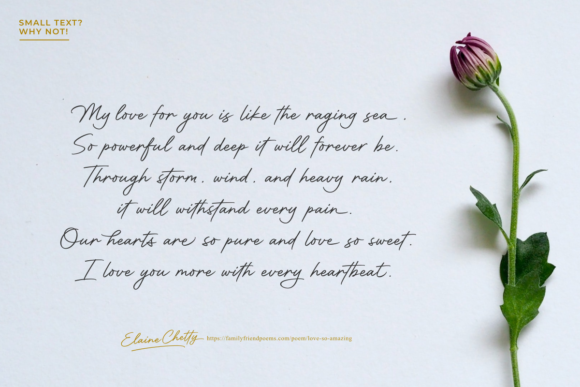 SMALL TEXT?
WHY NOT!
My love for you is like the raging sea.
So powerful and deep it will forever be.
Through storm, wind, and heavy rain,
it will withstand every pain.
Our hearts are so pure and love so sweet.
I love you more with every heartbeat.
Elaine Chetty
https://familyfriendpoems.com/poem/love-so-amazing